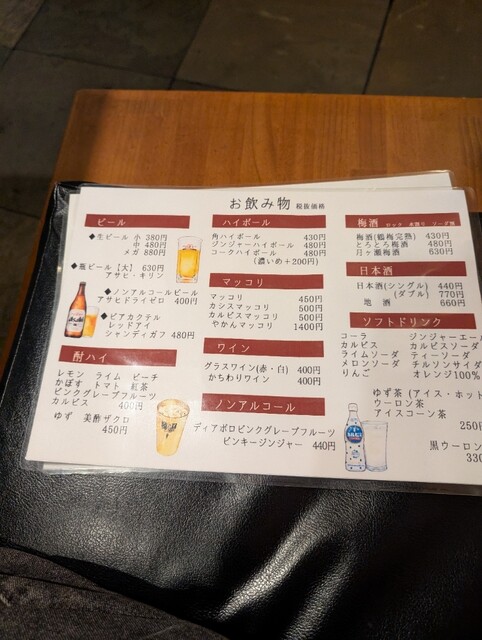 お飲み物 税抜価格
ビール
◆生ビール 小 380円
中 480円
メガ 880円
◆瓶ビール【大】 630円
アサヒ・キリン
◆ノンアルコールビール
アサヒドライゼロ 400円
◆ビアカクテル
レッドアイ
シャンディガフ 480円
酎ハイ
レモン ライム ピーチ
かぼす トマト 紅茶
ピンクグレープフルーツ
カルピス
400円
ゆず 美酢ザクロ
450円
ハイボール
角ハイボール 430円
ジンジャーハイボール 480円
コークハイボール 480円
(濃いめ+200円)
マッコリ
マッコリ 450円
カシスマッコリ 500円
カルピスマッコリ 500円
やかんマッコリ 1400円
ワイン
グラスワイン(赤・白) 400円
かちわりワイン 400円
ノンアルコール
ディアボロピンクグレープフルーツ
ピンキージンジャー 440円
梅酒 ロック 水割り ソーダ割
梅酒(鶴梅完熟) 430円
とろとろ梅酒 480円
月ヶ瀬梅酒 530円
日本酒
日本酒(シングル) 440円
(ダブル) 770円
地 酒 660円
ソフトドリンク
コーラ ジンジャーエー
カルピス カルピスソーダ
ライムソーダ ティーソーダ
メロンソーダ チルソンサイダ
りんご オレンジ100%
ゆず茶(アイス・ホット
ウーロン茶
アイスコーン茶
250円
黒ウーロン
330